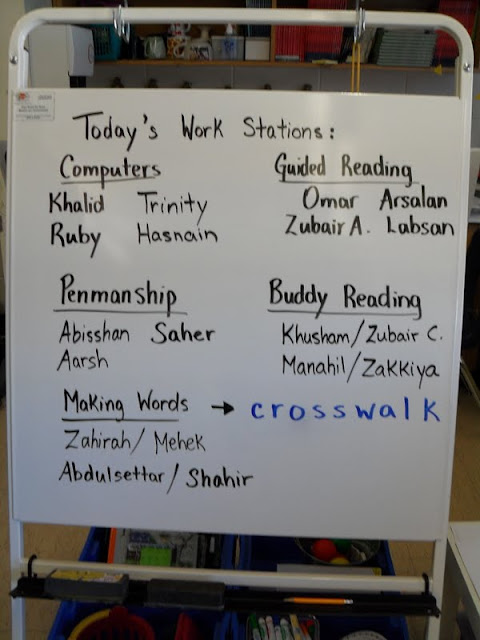 Today's Work Stations:
Computers
Khalid Trinity
Ruby Hasnain
Guided Reading
Omar Arsalan
Zubair A. Labsan
Penmanship
Abisshan Saher
Aarsh
Buddy Reading
Khusham/Zubair C.
Manahil/Zakkiya
Making Words → crosswalk
Zahirah/Mehek
Abdulsettar/Shahir